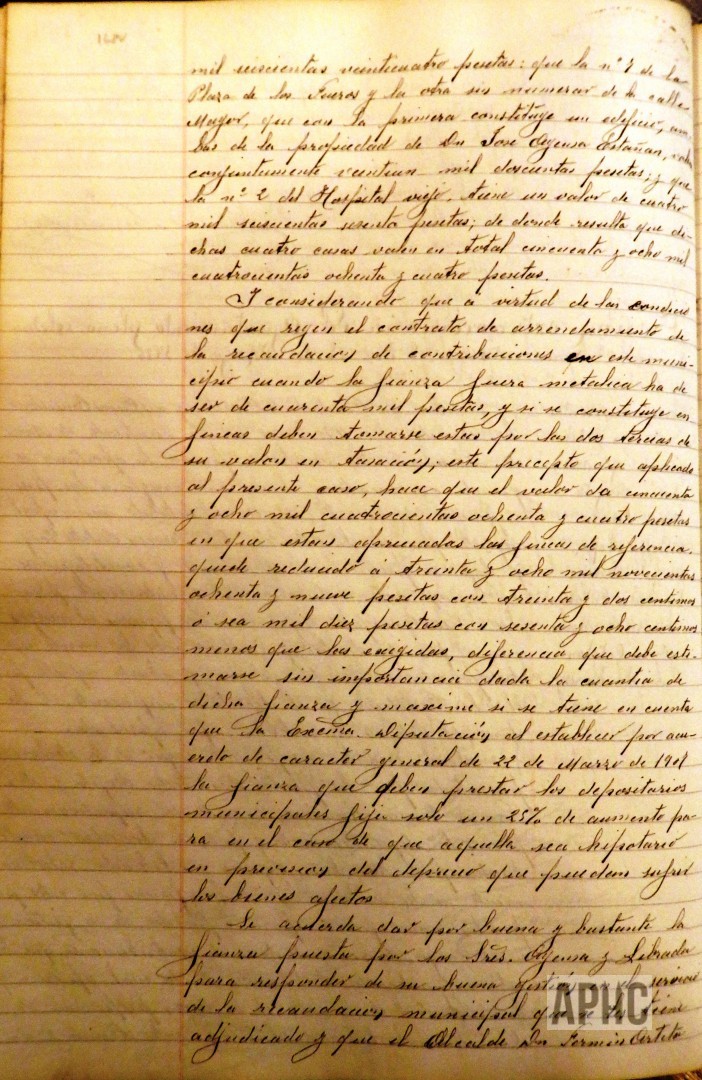 mil seiscientas veinticuatro pesetas: que la nº 7 de la
Plaza de los Fueros y la otra sin numerar de la calle
Mayor, que con la primera constituye un edificio, am-
bas de la propiedad de Dn José Ayensa Estañan, valen
conjuntamente veintiun mil doscientas pesetas; y que
la nº 2 del Hospital viejo, tiene un valor de cuatro
mil seiscientas sesenta pesetas; de donde resulta que di-
chas cuatro casas valen en total cincuenta y ocho mil
cuatrocientas ochenta y cuatro pesetas.
Y considerando que á virtud de las condicio
nes que rigen el contrato de arrendamiento de
la recaudacion de contribuciones en este muni-
cipio cuando la fianza fuera metalica ha de
ser de cuarenta mil pesetas, y si se constituye en
fincas deben tomarse estas por las dos tercias de
su valor en tasación; este precepto que aplicado
al presente caso, hace que el valor de cincuenta
y ocho mil cuatrocientas ochenta y cuatro pesetas
en que estan apreciadas las fincas de referencia,
quede reducido á treinta y ocho mil novecientas
ochenta y nueve pesetas con treinta y dos centimos
ó sea mil diez pesetas con sesenta y ocho centimos
menos que las exigidas, diferencia que debe esti-
marse sin importancia dada la cuantia de
dicha fianza y maxime si se tiene en cuenta
que la Excma. Diputación al establecer por acu-
erdo de caracter general de 22 de Marzo de 1901
la fianza que deben prestar los depositarios
municipales fija solo un 25% de aumento pa-
ra en el caso de que aquella sea hipotecaria
en prevision del deprecio que puedan sufrir
los bienes afectos
Se acuerda dar por buena y bastante la
fianza puesta por los Sres. Ayensa y Librada
para responder de su buena gestión en el servicio
de la recaudacion municipal que se les tiene
adjudicado y que el Alcalde Dn Fermin
APHC